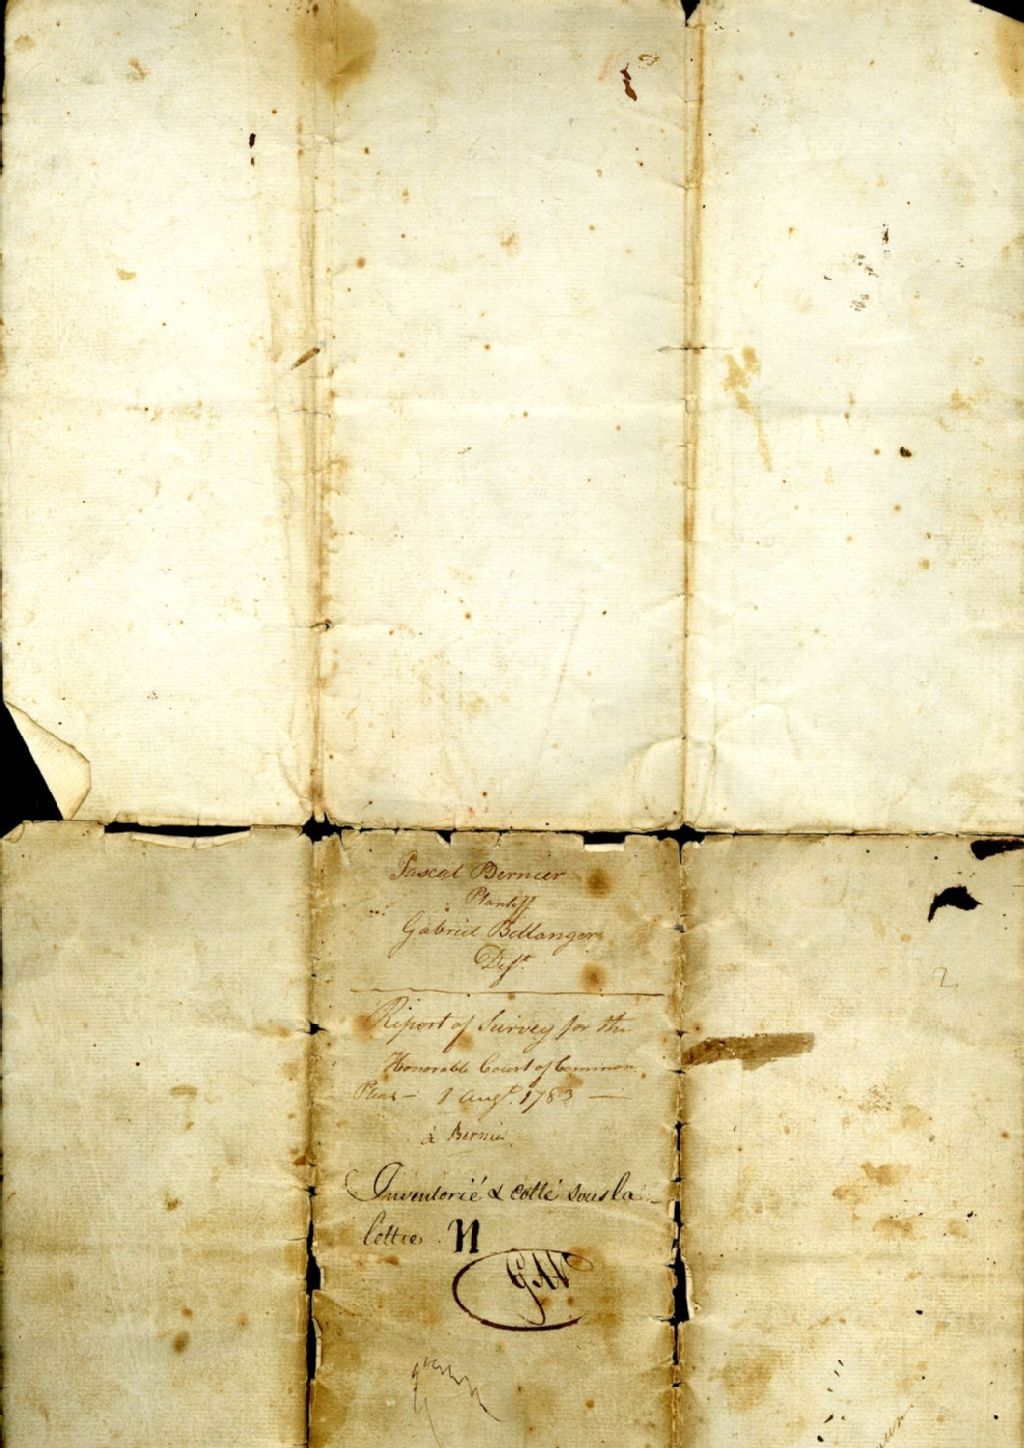 Pascal Bernier
Plantiff
Gabriel Bellanger
Deft.
Report of Survey for the
Honorable Court of Common
Pleas – 1 Augt. 1783 —
à Bernier
Inventorié & cotté sous la
lettre N
2